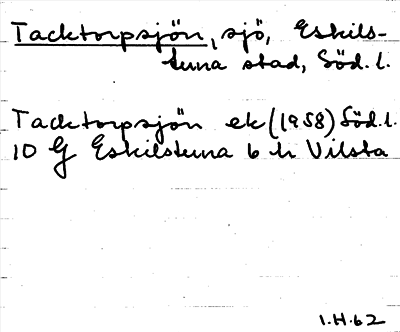 Tacktorpsjön, sjö, Eskils-
tuna stad, Söd.l.
Tacktorpsjön ek (1958) Söd.l.
10 G Eskilstuna 6 h Vilsta
I.H.62